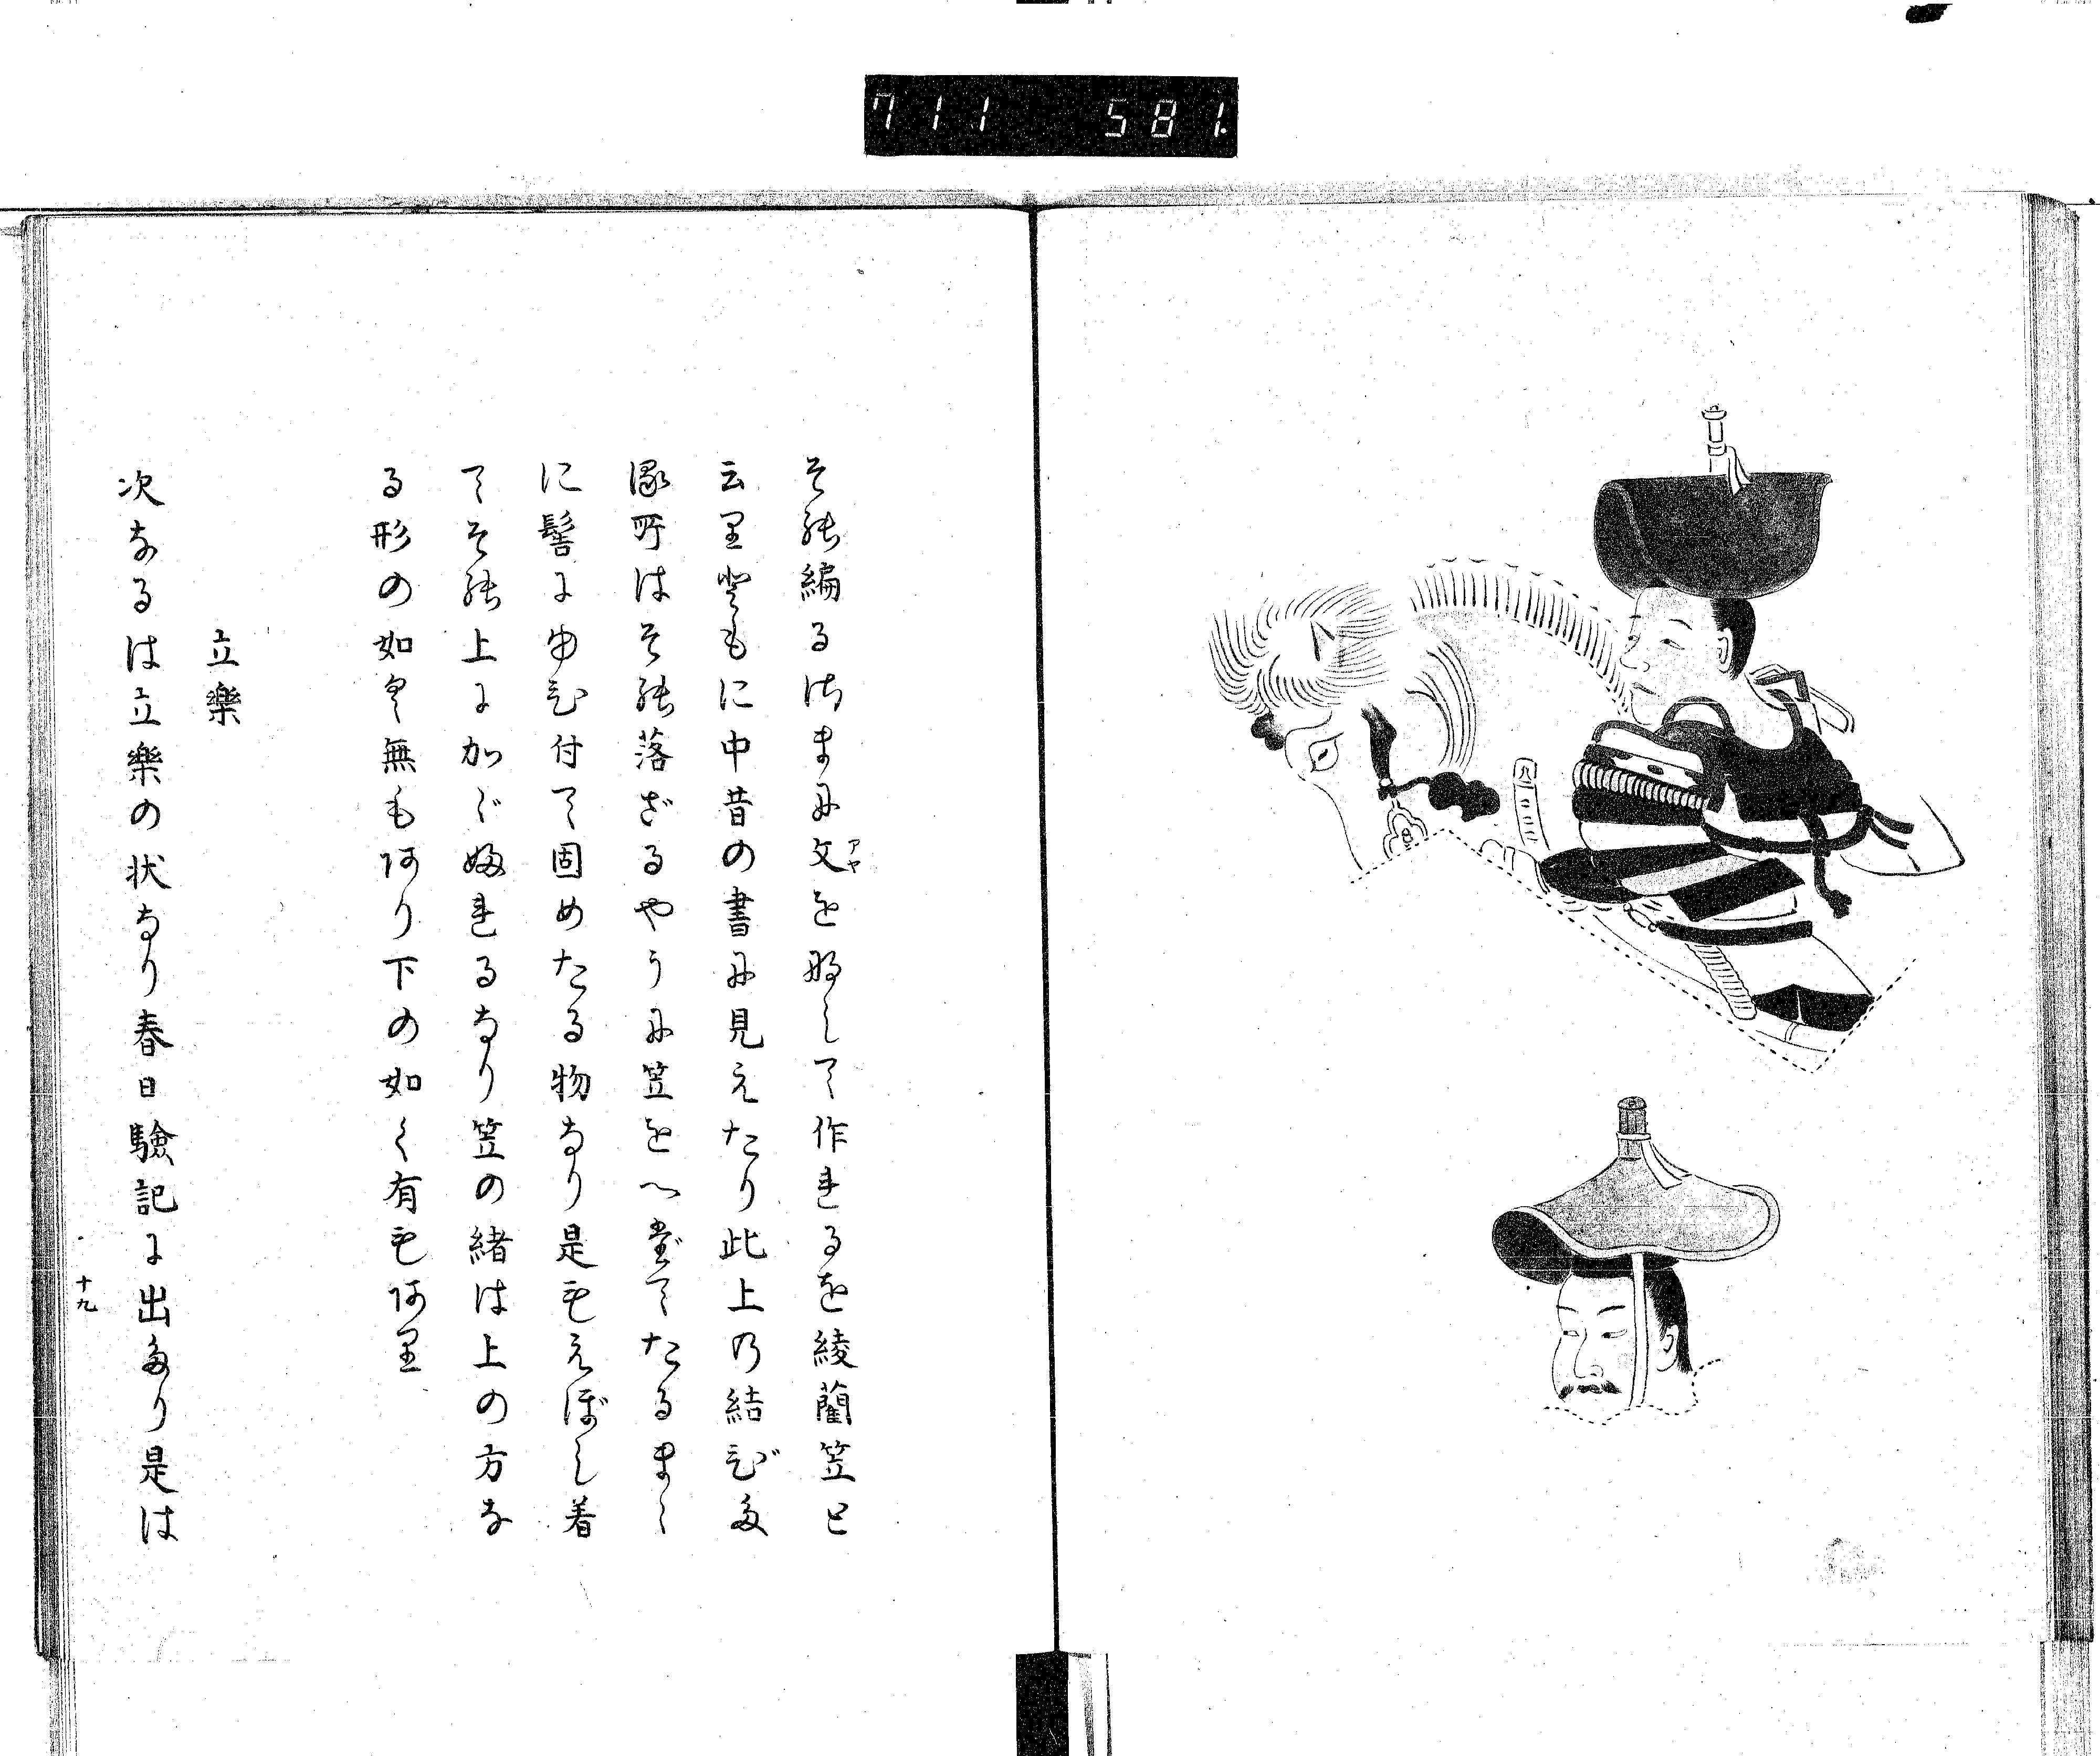 711 581
そ能編るはまに文を那して作れるを綾藺笠と
アヤ
云里登もに中昔の書に見えたり此上乃結びた
る所はそ能落ざるやうに笠をへだてたるまゝ
に髻にゆひ付て固めたる物なり是もえぼし着
てそ能上にかぶ婦れるなり笠の緒は上の方な
る形の如く無もあり下の如く有もあり
立樂
次なるは立樂の状なり春日驗記に出たり是は
十九